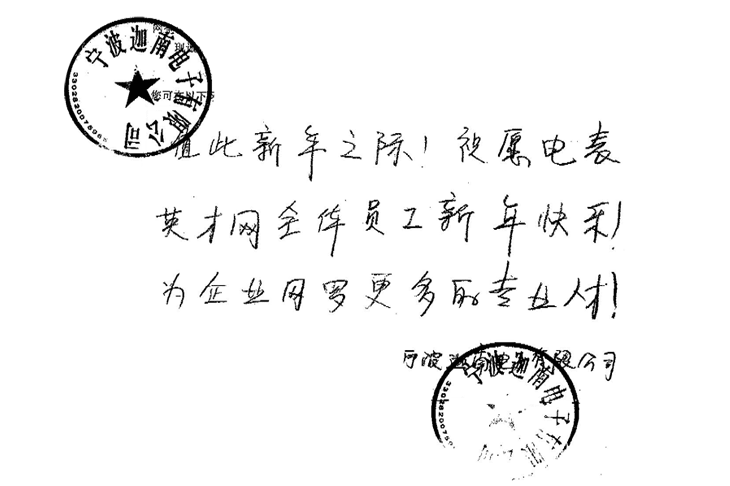 宁波迦南电子有限公司
您可在以下
值此新年之际！祝愿电表
英才网全体员工新年快乐！
为企业网罗更多的专业人才！
宁波迦南电子有限公司
宁波迦南电子有限